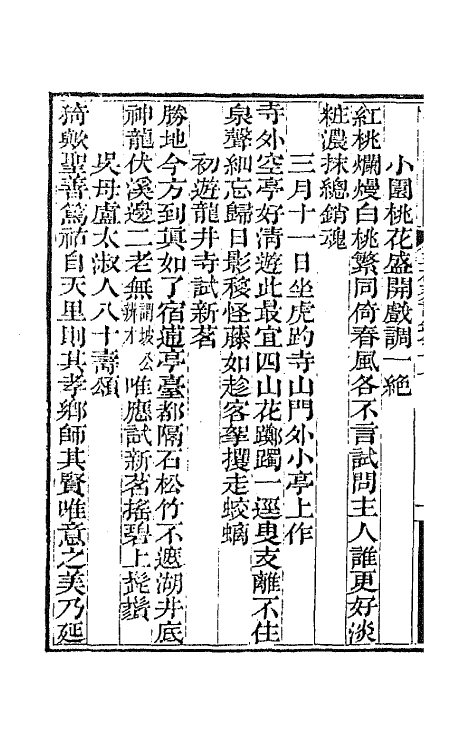 小園桃花盛開戲調一絕
紅桃爛熳白桃繁同倚春風各不言試問主人誰更好淡
粧濃抹總銷魂
三月十一日坐虎趵寺山門外小亭上作
寺外空亭好清遊此最宜四山花躑躅一逕叟支離不住
泉聲細忘歸日影移怪藤如趁客拏攫走蛟螭
初遊龍井寺試新茗
勝地今方到真如了宿逋亭臺都隔石松竹不遮湖井底
神龍伏溪邊二老無謂坡公辨才唯應試新茗搖碧上髭鬚
吳母盧太淑人八十壽頌
猗歟聖善篤祜自天里則其孝鄉師其賢唯意之美乃延